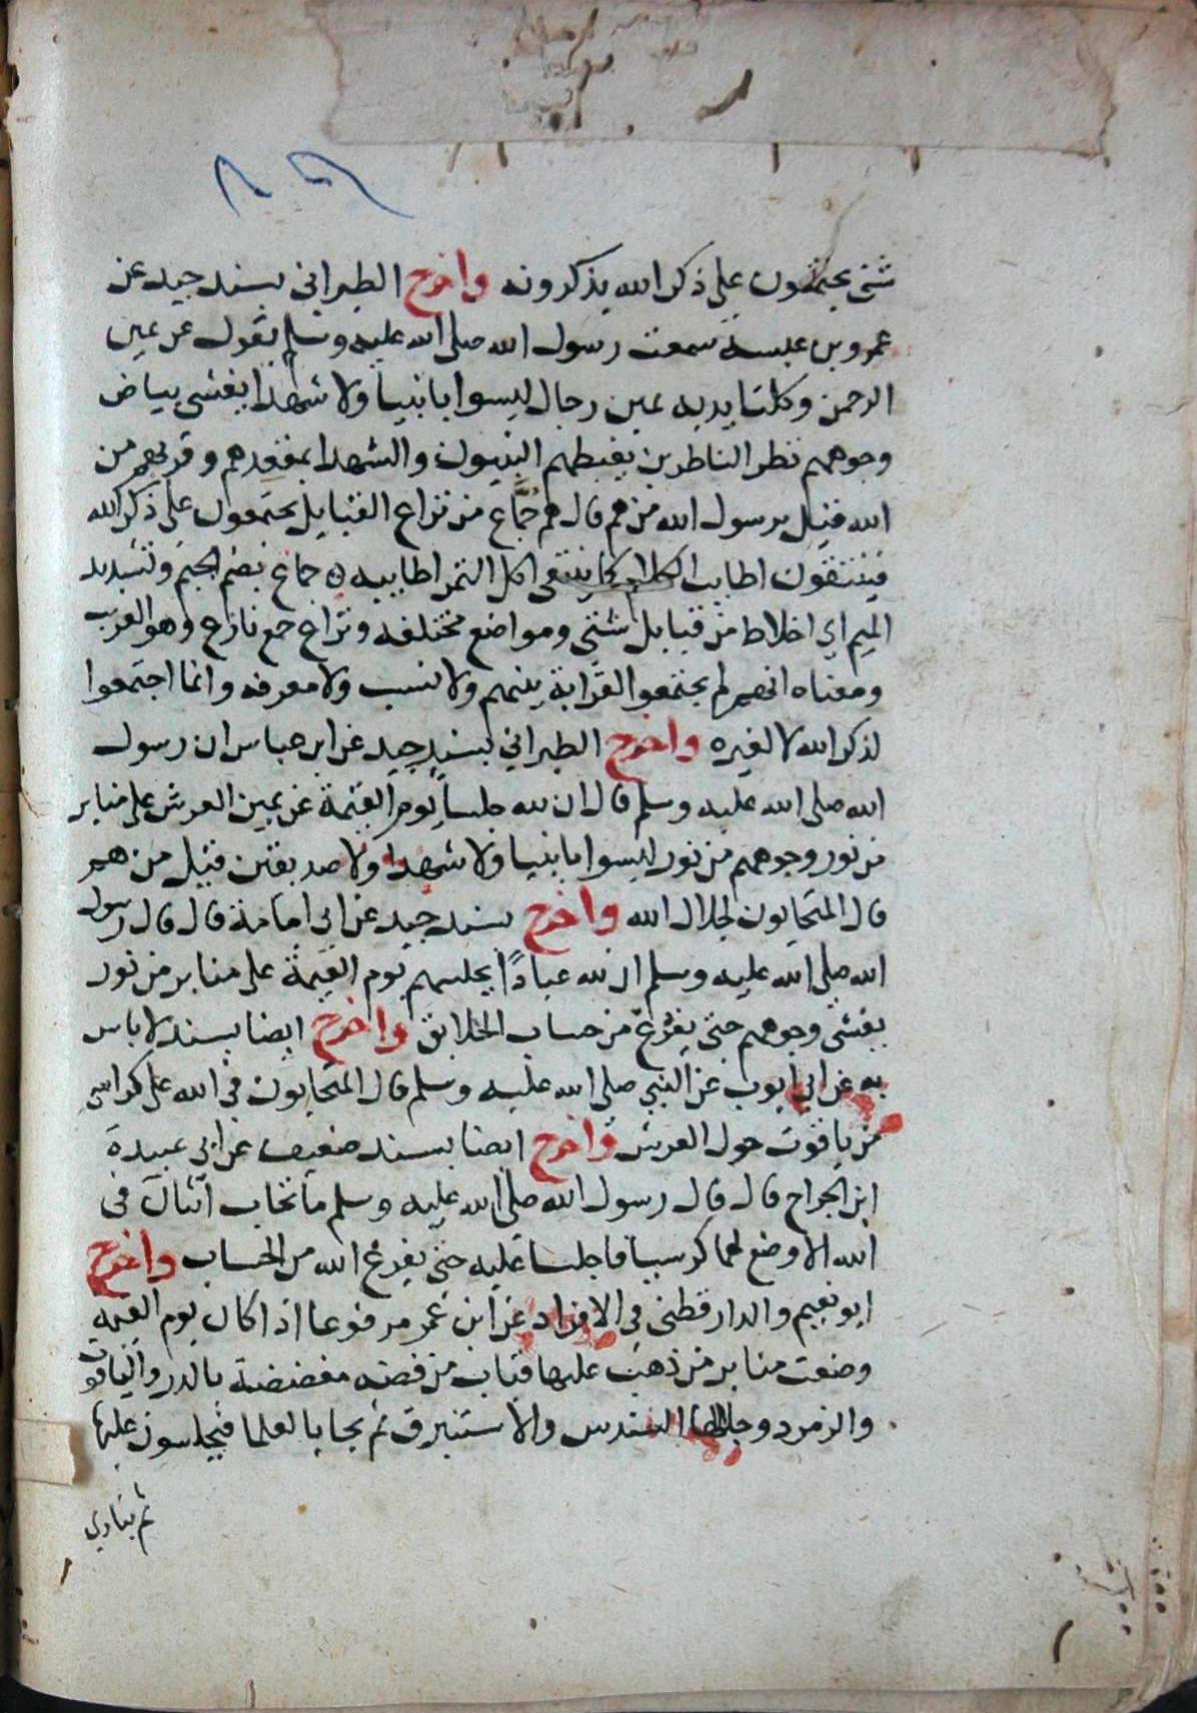 شتى يجتمعون على ذكر الله يذكرونه واخرج الطبراني بسند جيد عن
عمرو بن عبسة سمعت رسول الله صلى الله عليه وسلم يقول عن يمين
الرحمن وكلتا يديه يمين رجال ليسوا بانبيا ولا شهدا يغشى بياض
وجوههم نظر الناظرين يغبطهم النبيون والشهدا بمقعدهم وقربهم من
الله فقيل يرسول الله من هم قال هم جُمَّاع من نزاع القبايل يجتمعون على ذكر الله
فينتقون اطايب الكلام كما ينتقى اكل التمر اطايبه ه جماع بضم الجيم وتشديد
الميم اي اخلاط من قبايل شتى ومواضع مختلفه ونزاع جمع نازع وهو الغريب
ومعناه انهم لم يجتمعوا القرابة بينهم ولا نسب ولا معرفه وانما اجتمعوا
لذكر الله لا لغيره واخرج الطبراني بسند جيد عن ابن عباس ان رسول
الله صلى الله عليه وسلم قال ان لله جلسا يوم القيمة عن يمين العرش على منابر
من نور وجوههم من نور ليسوا بانبيا ولا شهدا ولا صديقين قيل من هم
قال المتحابون لجلال الله واخرج بسند جيد عن ابى امامة قال قال رسول
الله صلى الله عليه وسلم ان لله عبادًا يجلسهم يوم القيمة على منابر من نور
يغشى وجوههم حتى يفرغ من حساب الخلايق واخرج ايضا بسند لا باس
به عن ابي ايوب عن النبي صلى الله عليه وسلم قال المتحابون في الله على كراسى
من ياقوت حول العرش واخرج ايضا بسند ضعيف عن ابى عبيدة
ابن الجراح قال قال رسول الله صلى الله عليه وسلم ما تحاب اثنان فى
الله الا وضع لهما كرسيا فاجلسا عليه حتى يفرغ الله من الحساب واخرج
ابو نعيم والدارقطنى في الافراد عن ابن عمر مرفوعا اذا كان يوم القيمه
وضعت منابر من ذهب عليها قباب من فضه مفضضة بالدر والياقوت
والزمرد وجلالها السندس والاستبرق ثم يجا بالعلما فيجلسون عليها
ثم ينادي